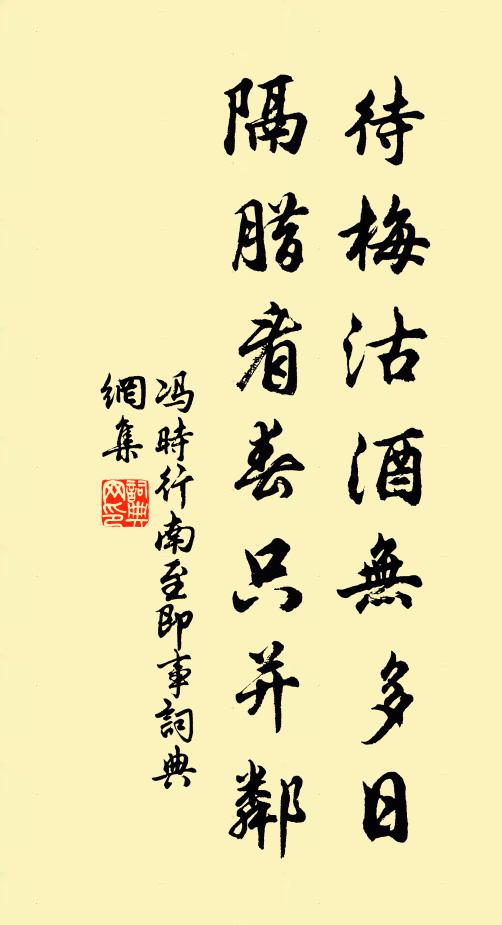 待梅沽酒無多日
隔腊看春只并鄰
冯時行南至即事詞典
網集
詞典
网印